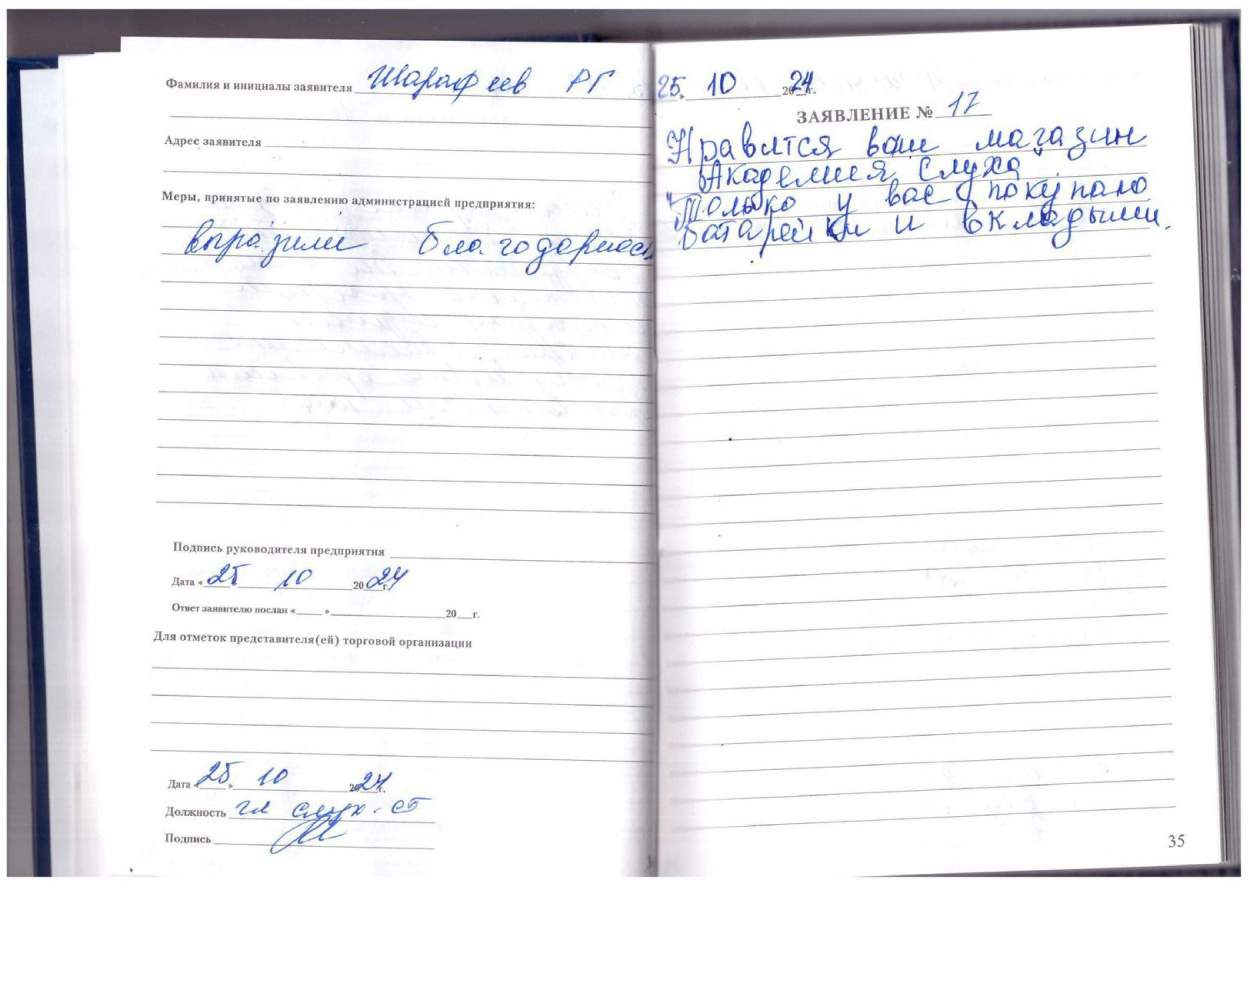 Фамилия и инициалы заявителя Шарафеев РГ
Адрес заявителя
Меры, принятые по заявлению администрацией предприятия:
выразили благодарнос
Подпись руководителя предприятия
Дата «25 10 2024 г.
Ответ заявителю послан «___ » ___ 20__г.
Для отметок представителя(ей) торговой организации
Дата «25 » 10 2024г.
Должность гл слух-ст
Подпись
25 10 2024г.
ЗАЯВЛЕНИЕ № 17
Нравится ваш магазин
"Академия Слуха"
Только у вас покупаю
батарейки и вкладыши.
35